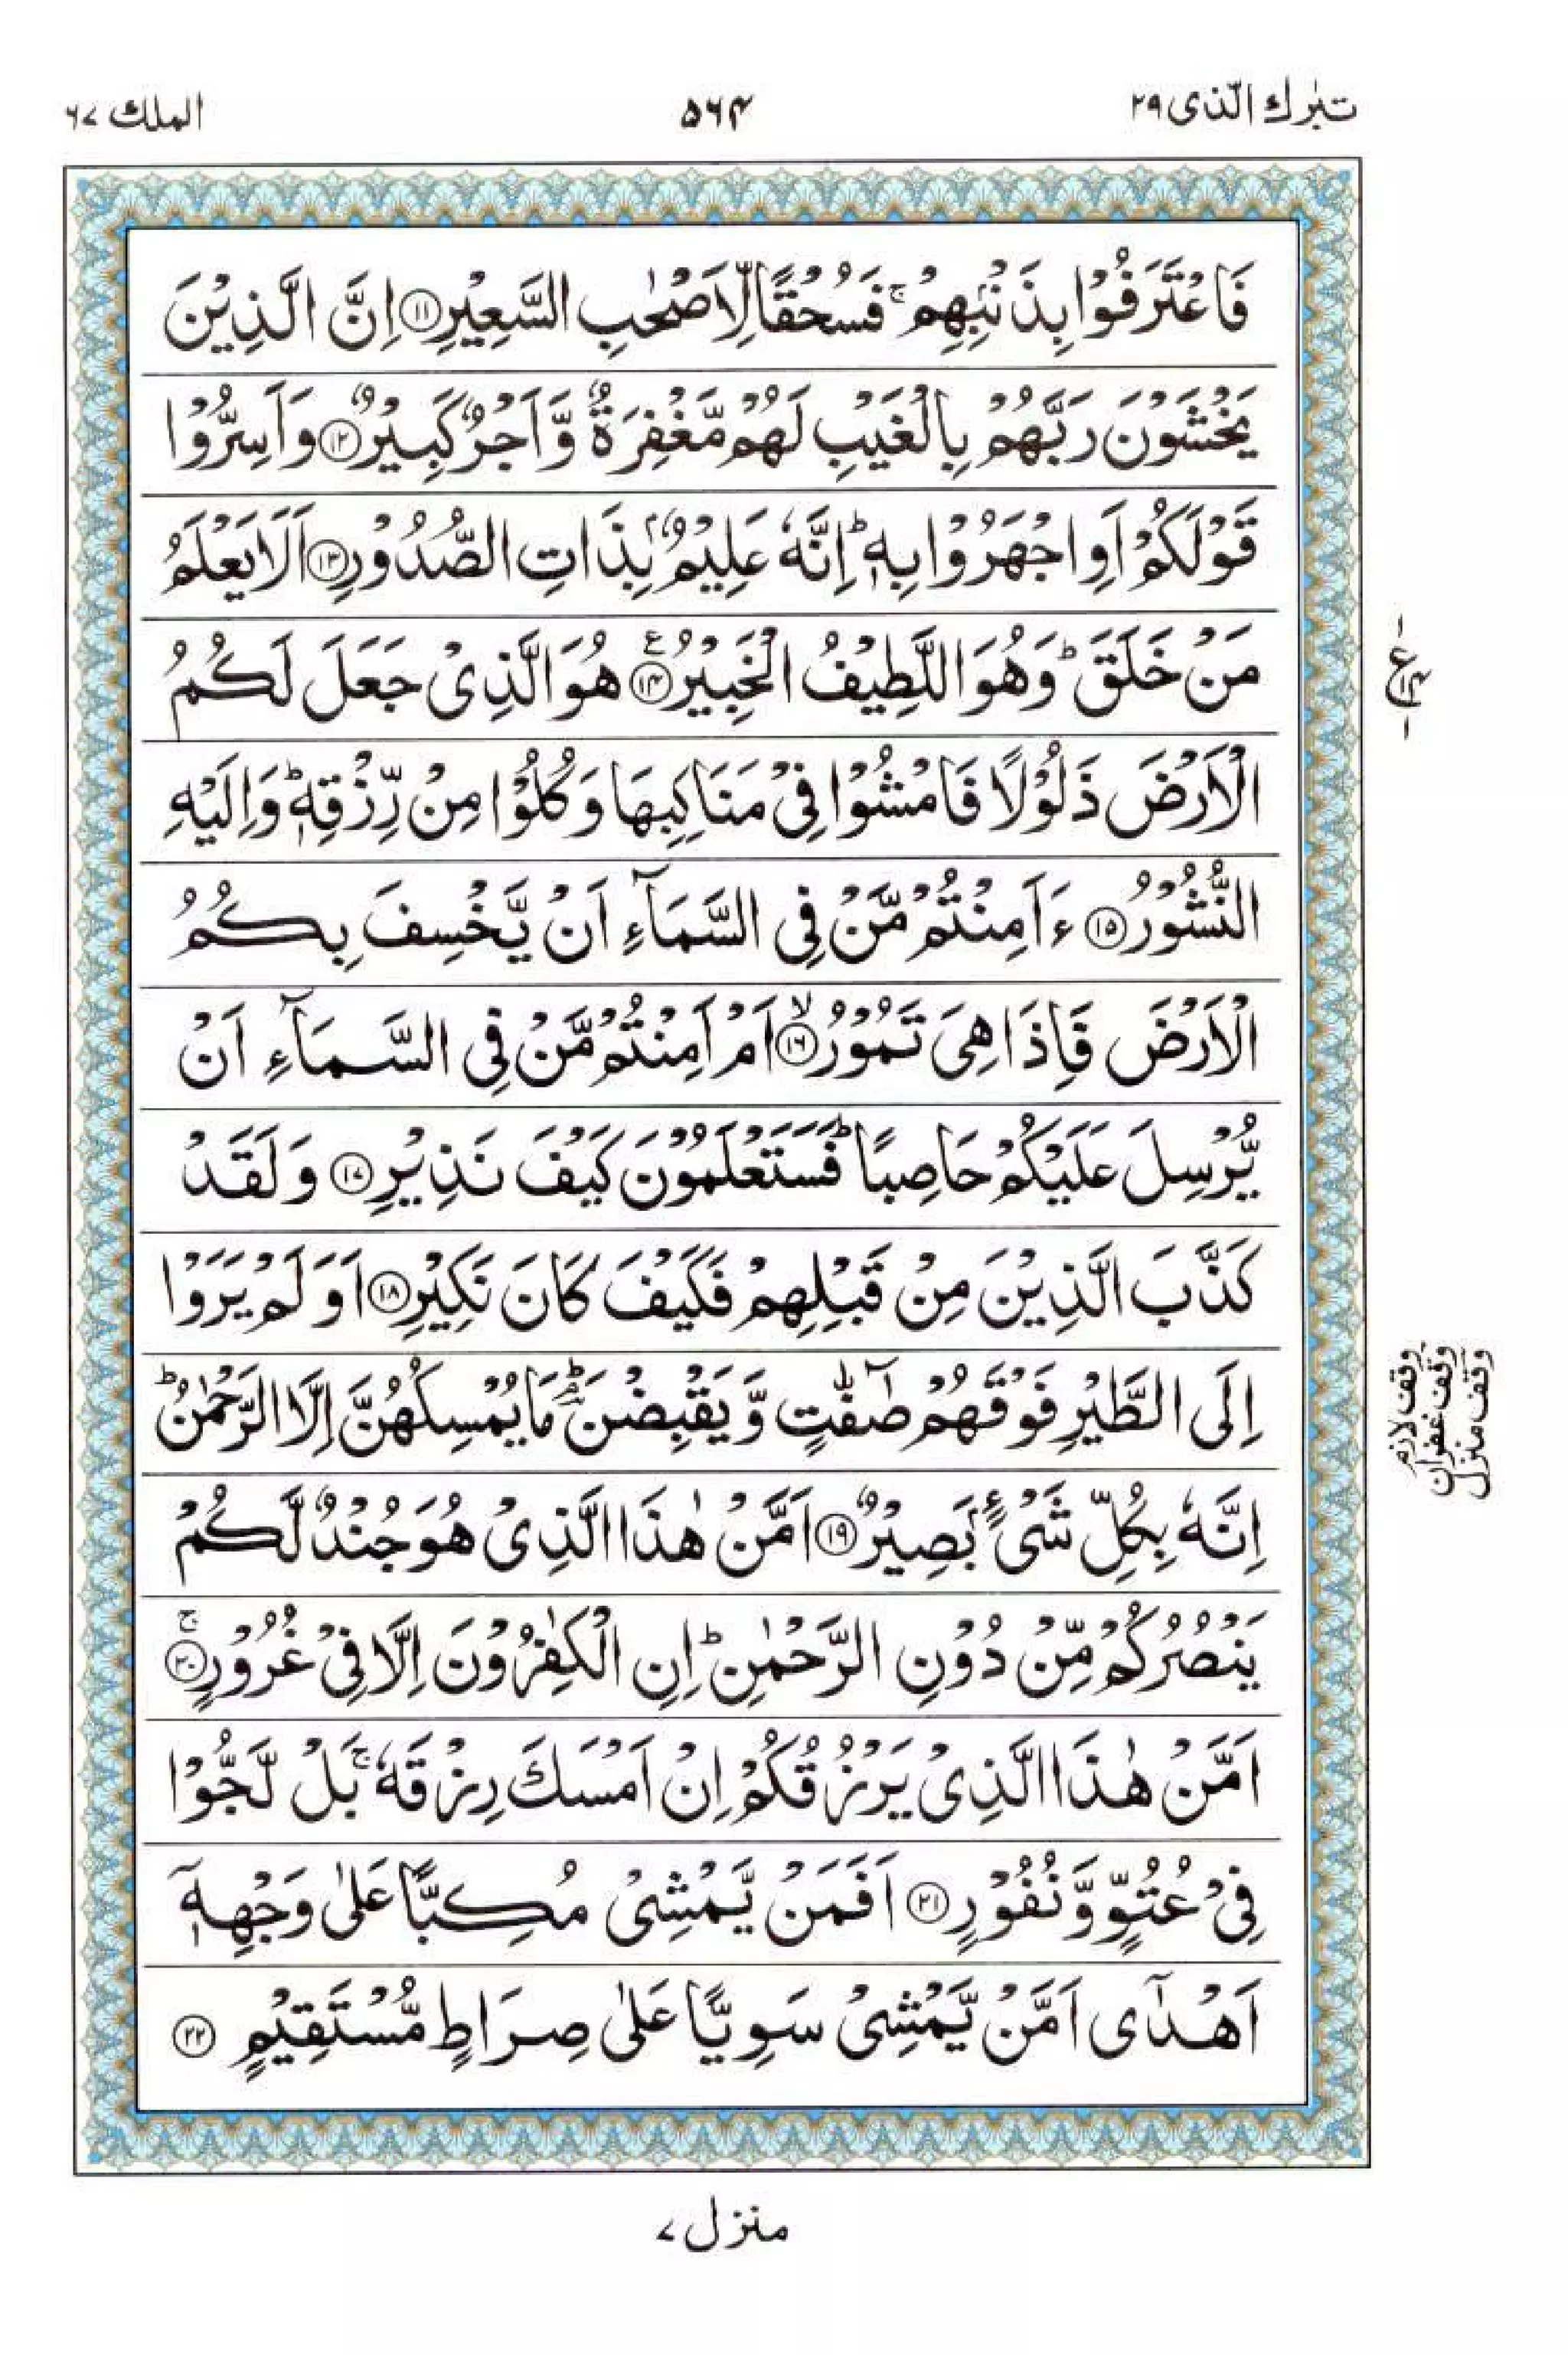 تبٰرك الّذی ۲۹
۵۶۴
الملك ۶۷
فَاعْتَرَفُوْا بِذَنْۢبِهِمْ ۚ فَسُحْقًا لِّاَصْحٰبِ السَّعِيْرِ ﴿۱۱﴾ اِنَّ الَّذِيْنَ
يَخْشَوْنَ رَبَّهُمْ بِالْغَيْبِ لَهُمْ مَّغْفِرَةٌ وَّاَجْرٌ كَبِيْرٌ ﴿۱۲﴾ وَاَسِرُّوْا
قَوْلَكُمْ اَوِ اجْهَرُوْا بِهٖ ؕ اِنَّهٗ عَلِيْمٌۢ بِذَاتِ الصُّدُوْرِ ﴿۱۳﴾ اَلَا يَعْلَمُ
مَنْ خَلَقَ ؕ وَهُوَ اللَّطِيْفُ الْخَبِيْرُ ﴿۱۴﴾ ع هُوَ الَّذِىْ جَعَلَ لَكُمُ
الْاَرْضَ ذَلُوْلًا فَامْشُوْا فِىْ مَنَاكِبِهَا وَكُلُوْا مِنْ رِّزْقِهٖ ؕ وَاِلَيْهِ
النُّشُوْرُ ﴿۱۵﴾ ءَاَمِنْتُمْ مَّنْ فِى السَّمَآءِ اَنْ يَّخْسِفَ بِكُمُ
الْاَرْضَ فَاِذَا هِىَ تَمُوْرُ ﴿۱۶﴾ ۙ اَمْ اَمِنْتُمْ مَّنْ فِى السَّمَآءِ اَنْ
يُّرْسِلَ عَلَيْكُمْ حَاصِبًا ؕ فَسَتَعْلَمُوْنَ كَيْفَ نَذِيْرِ ﴿۱۷﴾ وَلَقَدْ
كَذَّبَ الَّذِيْنَ مِنْ قَبْلِهِمْ فَكَيْفَ كَانَ نَكِيْرِ ﴿۱۸﴾ اَوَلَمْ يَرَوْا
اِلَى الطَّيْرِ فَوْقَهُمْ صٰٓفّٰتٍ وَّيَقْبِضْنَ ؕۘ مَا يُمْسِكُهُنَّ اِلَّا الرَّحْمٰنُ ؕ
اِنَّهٗ بِكُلِّ شَىْءٍۢ بَصِيْرٌ ﴿۱۹﴾ اَمَّنْ هٰذَا الَّذِىْ هُوَ جُنْدٌ لَّكُمْ
يَنْصُرُكُمْ مِّنْ دُوْنِ الرَّحْمٰنِ ؕ اِنِ الْكٰفِرُوْنَ اِلَّا فِىْ غُرُوْرٍ ﴿۲۰﴾ ۚ
اَمَّنْ هٰذَا الَّذِىْ يَرْزُقُكُمْ اِنْ اَمْسَكَ رِزْقَهٗ ۚ بَلْ لَّجُّوْا
فِىْ عُتُوٍّ وَّنُفُوْرٍ ﴿۲۱﴾ اَفَمَنْ يَّمْشِىْ مُكِبًّا عَلٰى وَجْهِهٖۤ
اَهْدٰٓى اَمَّنْ يَّمْشِىْ سَوِيًّا عَلٰى صِرَاطٍ مُّسْتَقِيْمٍ ﴿۲۲﴾
ع
وقف لازم
وقف غفران
وقف منزل
منزل ۷